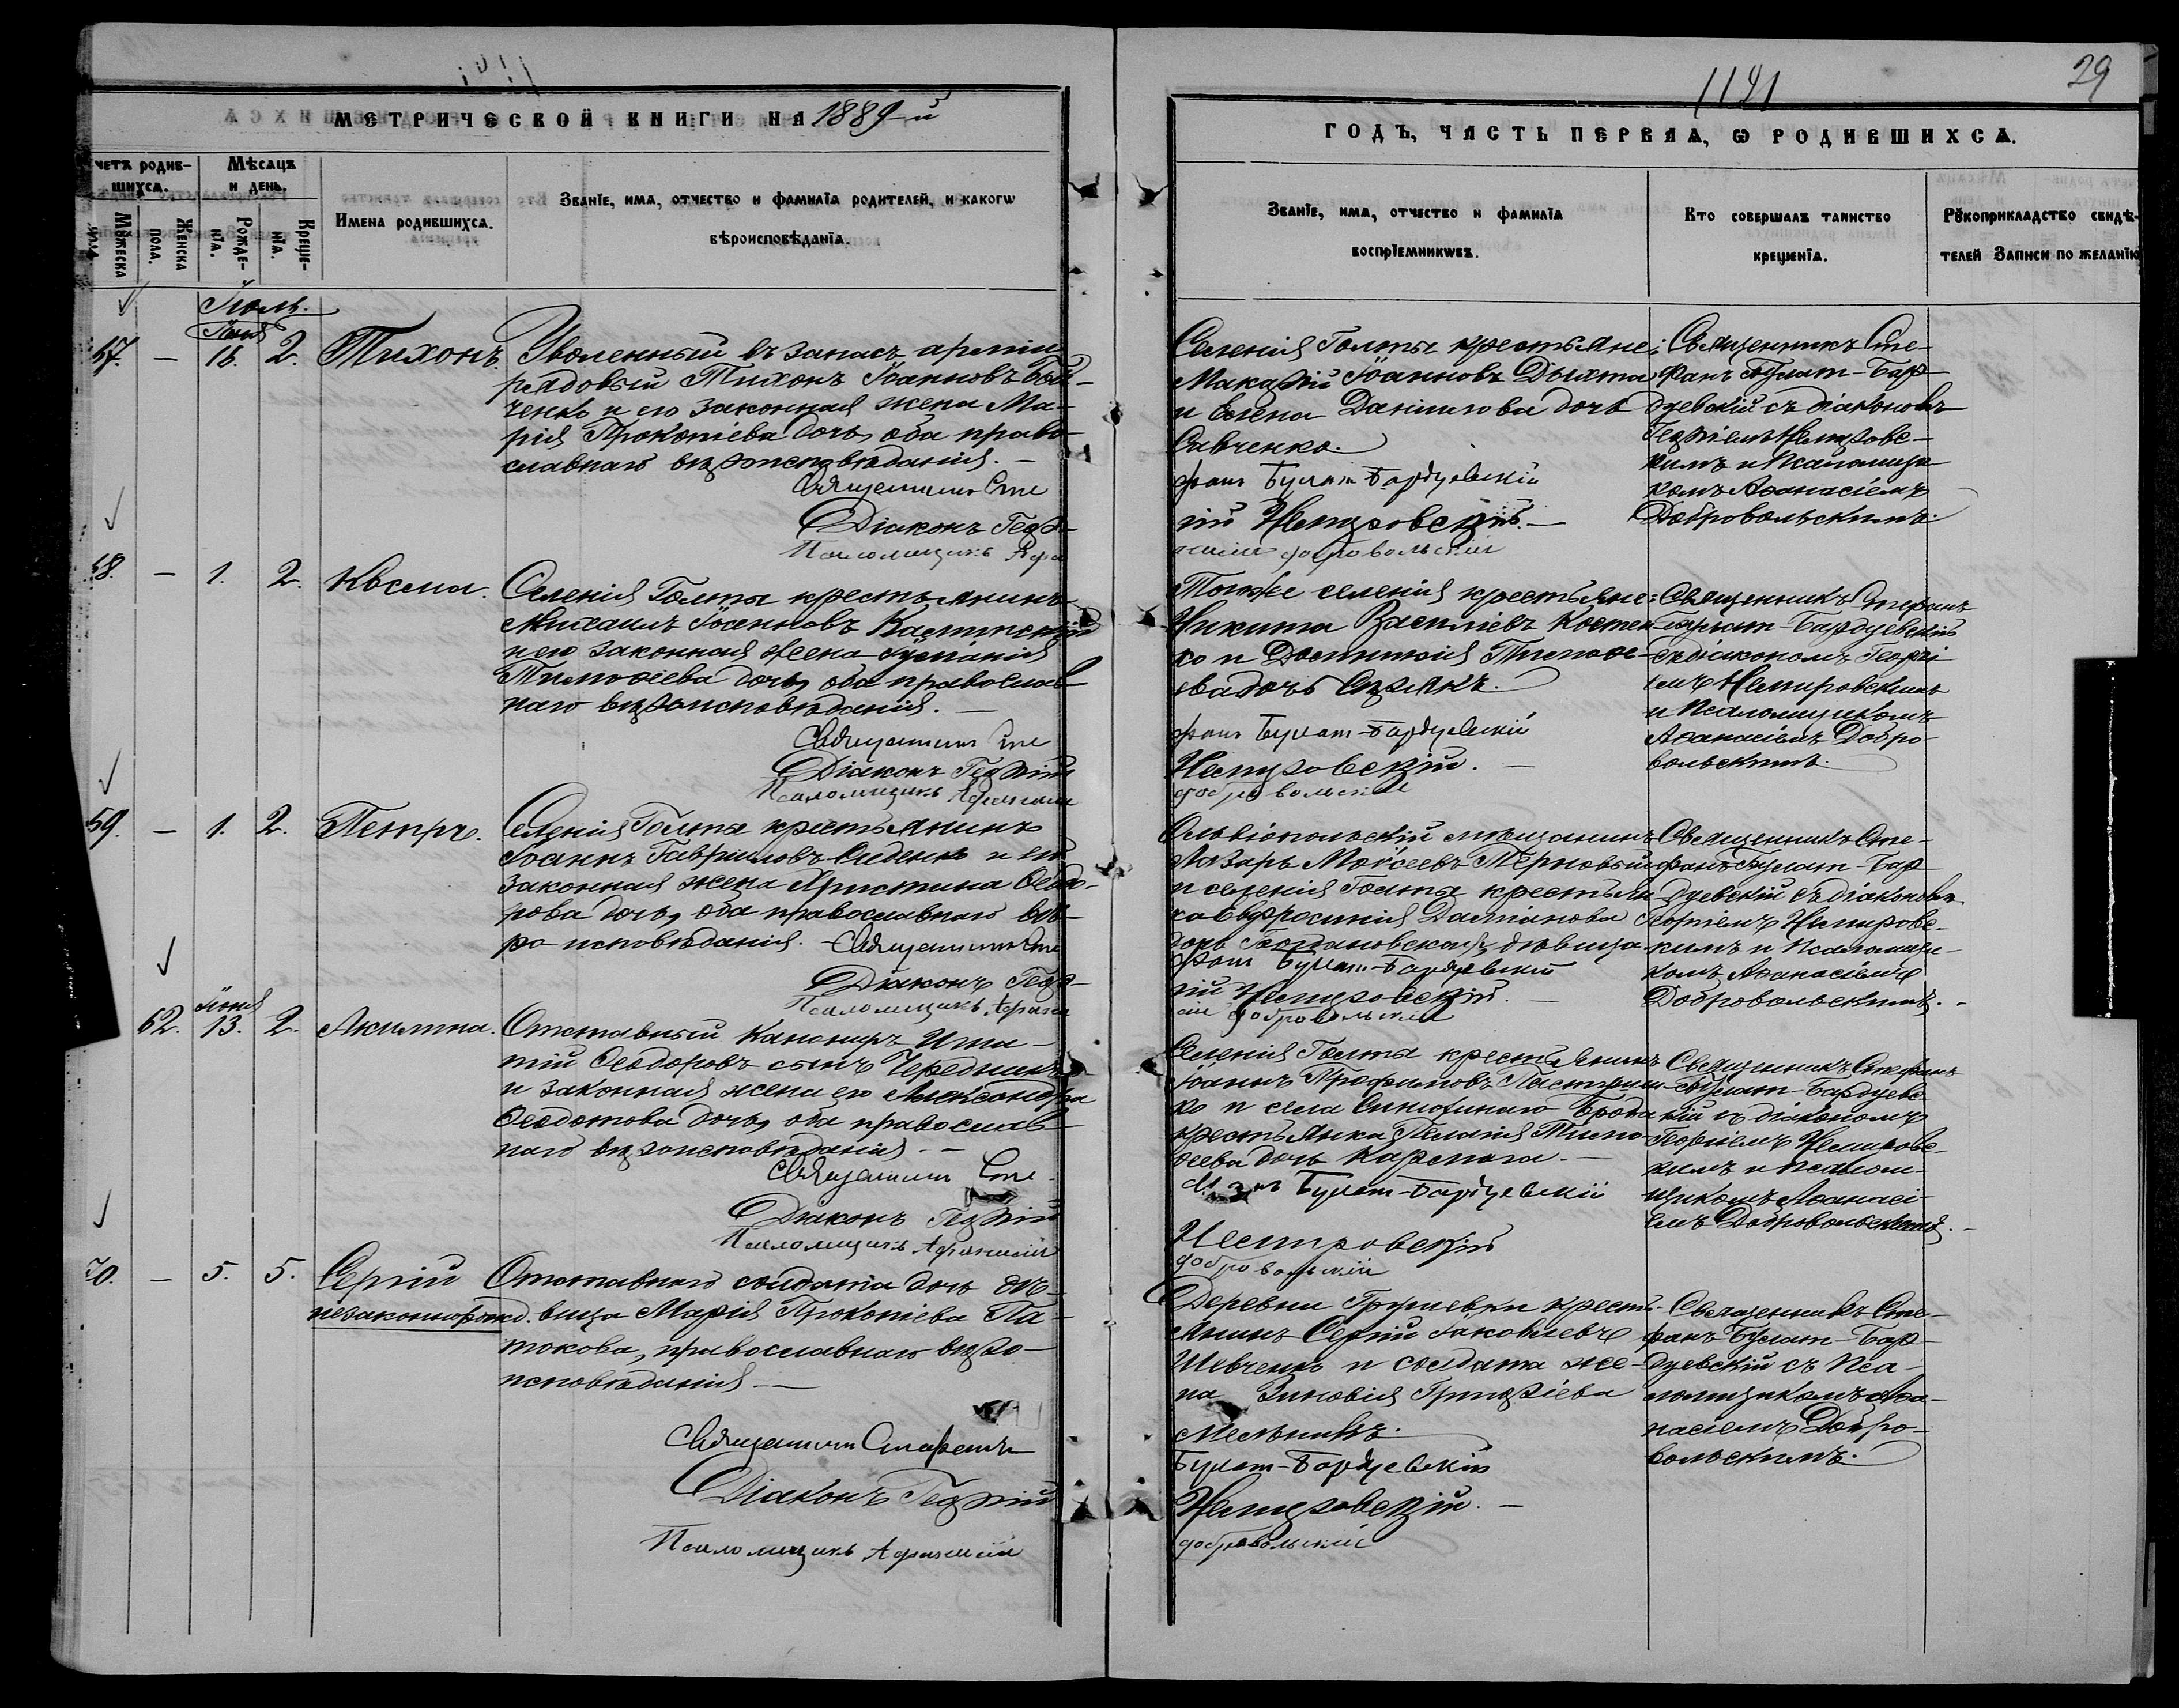 1191
29
МЕТРИЧЕСКОЙ КНИГИ НА 1889-й
ГОДЪ, ЧАСТЬ ПЕРВАЯ, Ѡ РОДИВШИХСѦ.
Счетъ родив-
шихсѧ.
Мꙋжеска
пола.
Женска
пола.
Мѣсяцъ
и день.
Рожде-
нїѧ.
Креще-
нїѧ.
Имена родившихсѧ.
Званїе, имѧ, отчество и фамилїѧ родителей, и какогѡ
вѣроисповѣданїѧ.
Званїе, имѧ, отчество и фамилїѧ
воспрїемникѡвъ.
Кто совершалъ таинство
крещенїѧ.
Рꙋкоприкладство свидѣ-
телей записи по желанїю
Іюль.
57. — 16. 2. Тихонъ.
Уволенный въ запасъ арміи
рядовый Тихонъ Іоанновъ Бой-
ченко и его законная жена Ма-
рія Прокопіева дочь, оба право-
славнаго вѣроисповѣданія. —
Священникъ Сте
Діаконъ Геор-
Псаломщикъ Афа
Селенія Голты крестьяне:
Макарій Іоанновъ Дыхта
и Елена Даніилова дочь
Савченко.
фанъ Булат-Бардуевскій
гій Немировскій. —
насій Добровольскій
Священникъ Сте-
фанъ Булат-Бар-
дуевскій съ діакономъ
Георгіемъ Немировс-
кимъ и Псаломщи-
комъ Аѳанасіемъ
Добровольскимъ.
58. — 1. 2. Косма.
Селенія Голты крестьянинъ
Михаилъ Іоанновъ
и его законная жена
Тимоѳеева дочь, оба православ-
наго вѣроисповѣданія. —
Священникъ Сте
Діаконъ Георгій
Псаломщикъ Афанасій
Тогоже селенія крестьяне:
Никита Василіевъ Костен-
ко и
ева дочь
фанъ Булат-Бардуевскій
Немировскій. —
Добровольскій
Священникъ Стефанъ
Булат-Бардуевскій
съ діакономъ Георгі-
емъ Немировскимъ
и Псаломщикомъ
Аѳанасіемъ Добро-
вольскимъ.
59. — 1. 2. Петръ.
Селенія Голты крестьянинъ
Іоаннъ Гавриловъ Сиденко и его
законная жена Христина Ѳеодо-
рова дочь, оба православнаго вѣ-
ро исповѣданія. — Священникъ Сте
Діаконъ Геор-
Псаломщикъ Афана
Ольвіопольскій мѣщанинъ
Лазарь Моѵсеевъ Терновый
и селенія Голты крестьян-
ка Евфросинія
дочь дѣвица.
фанъ Булат-Бардуевскій
гій Немировскій. —
сій Добровольскій
Священникъ Сте-
фанъ Булат-Бар-
дуевскій съ діакономъ
Георгіемъ Немировс-
кимъ и Псаломщи-
комъ Аѳанасіемъ
Добровольскимъ. —
Іюня
62. 13. 2. Акилина.
Отставный Канониръ Игна-
тій Ѳеодоровъ сынъ Чередникъ
и законная жена его Александра
Ѳеодотова дочь, оба православ-
наго вѣроисповѣданія. —
Священникъ Сте
Діаконъ Георгій
Псаломщикъ Афанасій
Селенія Голты крестьянинъ
Іоаннъ Трофимовъ
ко и села Синюхинаго Брода
крестьянка Пелагія Тимо-
ѳеева дочь
фанъ Булат-Бардуевскій
Немировскій
Добровольскій
Священникъ Стефанъ
Булат-Бардуевс-
кій съ діакономъ
Георгіемъ Немировс-
кимъ и псалом-
щикомъ Аѳанасі-
емъ Добровольскимъ. —
70. — 5. 5. Сергій
незаконнорожд.
Отставнаго солдата дочь дѣ-
вица Марія Прокопіева Па-
токова, православнаго вѣро-
исповѣданія —
Священникъ Стефанъ
Діаконъ Георгій
Псаломщикъ Афанасій
Деревни Грушевки кресть-
янинъ Сергій Іаковлевъ
Шевченко и солдата же-
на Зиновія Григоріева
Мельникъ.
Булат-Бардуевскій
Немировскій. —
Добровольскій
Священникъ Сте-
фанъ Булат-Бар-
дуевскій съ Пса-
ломщикомъ Аѳа-
насіемъ Добро-
вольскимъ.